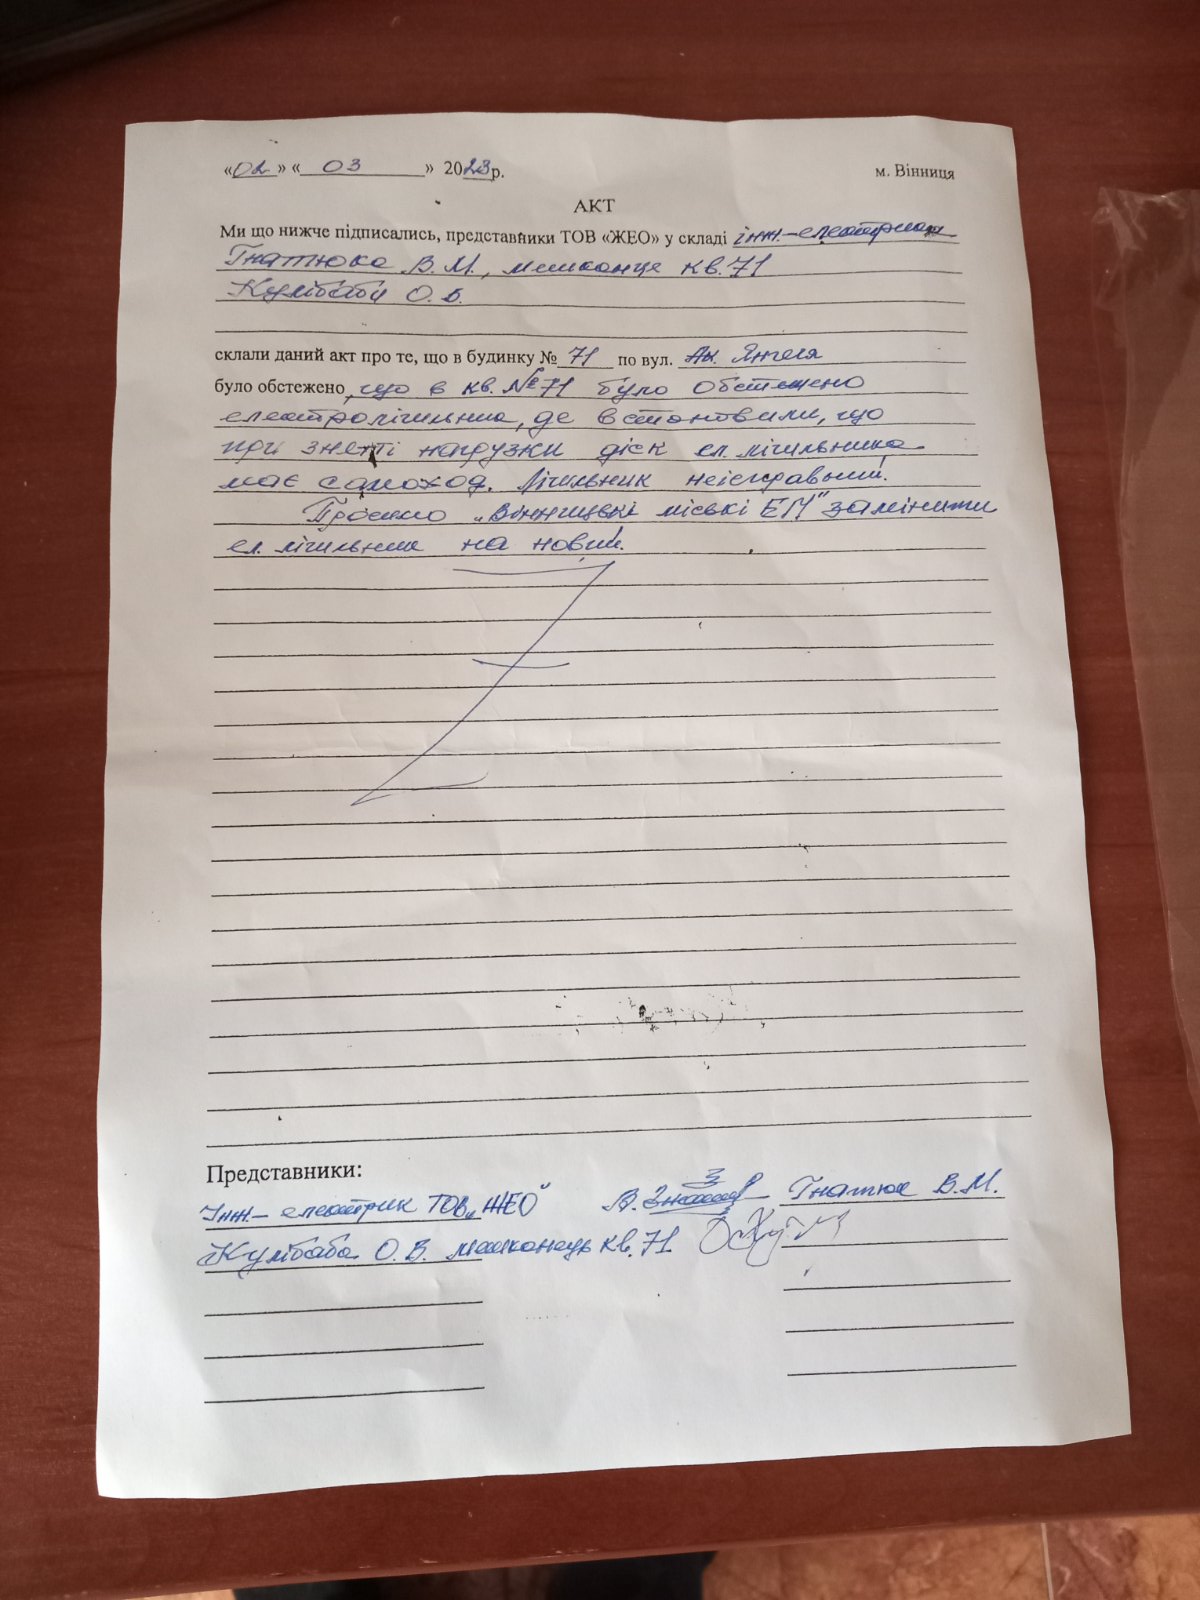 «02» «03» 2023р. м. Вінниця
АКТ
Ми що нижче підписались, представники ТОВ «ЖЕО» у складі інж.-електрика
Гнатюка В.М., мешканця кв. 71
Кулібаби О.В.
склали даний акт про те, що в будинку № 71 по вул. Ак. Янгеля
було обстежено, що в кв. №71 було обстежено
електролічильник, де встановили, що
при знятті нагрузки діск ел. лічильника
має самоход. Лічильник неісправний.
Просимо „Вінницькі міські ЕМ" замінити
ел. лічильник на новий.
Представники:
Інж- електрик ТОВ „ЖЕО" Гнатюк В.М.
Кулібаба О.В. мешканець кв. 71